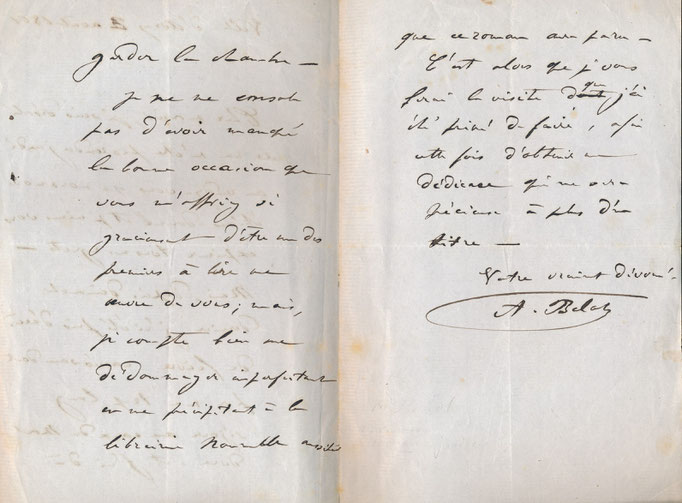 garder la chambre —
je ne me console
pas d'avoir manqué
la bonne occasion que
vous m'offriez si
gracieusement d'être un des
premiers à lire une
œuvre de vous ; mais,
je compte bien me
dédommager imparfaitement
en me précipitant à la
librairie Nouvelle aussitôt
que ce roman aura paru —
C'est alors que je vous
ferai la visite que j'ai
été privé de faire, afin
cette fois d'obtenir une
dédicace qui me sera
précieuse à plus d'un
titre —
Votre vraiment dévoué
A. Belot